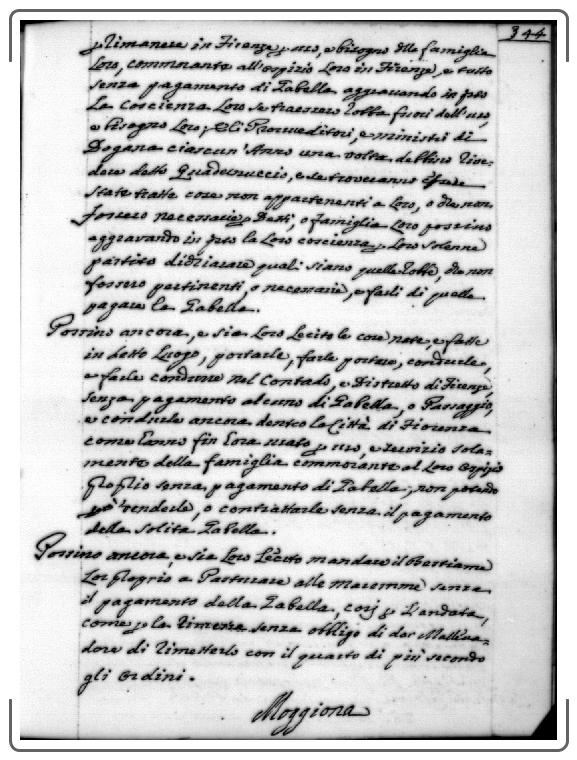 344
p rimanere in Firenze p uso, e bisogno dlle famiglie
Loro, commorante all'ospizio Loro in Firenze, e tutto
senza pagamento di Gabella aggravando in pto
la coscienza Loro se traessero robba fuori dell'uso,
e bisogno Loro, e li Provveditori, e ministri di
Dogana ciascun' Anno una volta debbino rive-
dere detto Quadernuccio, e se troveranno
state tratte cose non appartenenti a Loro, o che non
fossero necessarie p Detti, o famiglia Loro possino
aggravando in pto la Loro coscienza p Loro solenne
partito dichiarare quali siano quelle robbe, che non
fossero pertinenti, o necessarie, e farli di quelle
pagare la Gabella.
Possino ancora, e sia Loro Lecito le cose nate, e fatte
in detto Luogo, portarle, farle portare, condurle,
e farle condurre nel Contado, e Distretto di Firenze,
senza pagamento alcuno di Gabella, o Passaggio,
e condurle ancora dentro la Città di Fiorenza
come Eanno fin Eora usato p uso, e servizio sola-
mente della famiglia commorante al Loro ospizio
proprio senza pagamento di Gabella, non potendo
però renderle, o contrattarle senza il pagamento
della solita Gabella.
Possino ancora, e sia Loro Lecito mandare il Bestiame
Lor proprio a Pasturare alle maremme senza
il pagamento della Gabella, cosj p L'andata,
come p la rimessa senza obbligo di dar Malleva-
dore di rimetterlo con il quarto di più secondo
gli ordini.
Moggiona